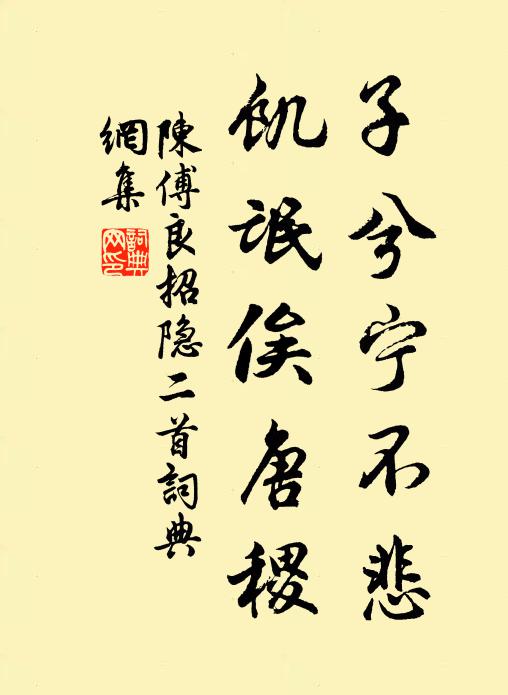 子兮宁不悲
飢氓俟唐稷
陳傅良招隐二首詞典
網集
詞典網印